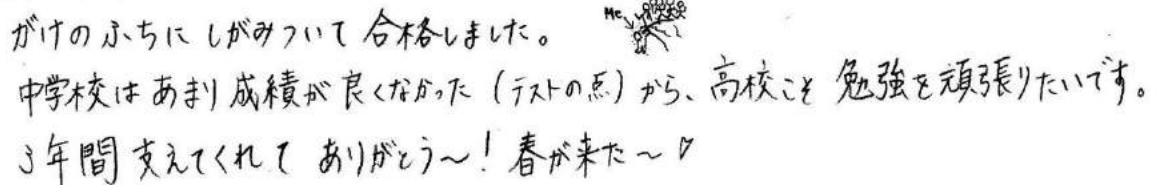 Me
がけのふちにしがみついて合格しました。
中学校はあまり成績が良くなかった（テストの点）から、高校こそ勉強を頑張りたいです。
3年間支えてくれてありがとう〜！春が来た〜♡